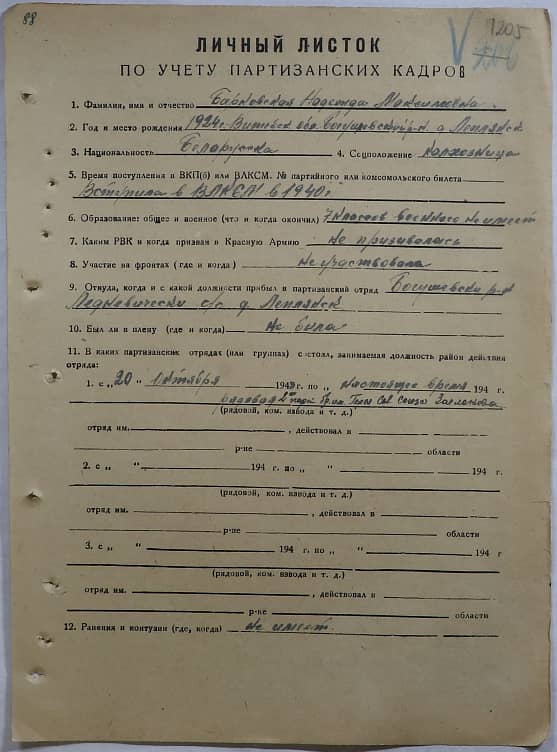 88
1205
ЛИЧНЫЙ ЛИСТОК
ПО УЧЕТУ ПАРТИЗАНСКИХ КАДРОВ
1. Фамилия, имя и отчество Надежда Максимовна
2. Год и место рождения 1924 г. Витебск обл. Богушевский р-н д. Леплянск
3. Национальность Белоруска 4. Соцположение колхозница
5. Время поступления в ВКП(б) или ВЛКСМ. № партийного или комсомольского билета
Вступила в ВЛКСМ в 1940 г
6. Образование: общее и военное (что и когда окончил) 7 классов военного не имеет
7. Каким РВК и когда призван в Красную Армию не призывалась
8. Участие на фронтах (где и когда) не участвовала
9. Откуда, когда и с какой должности прибыл в партизанский отряд Богушевски р-н
с/с д. Леплянск
10. Был ли в плену (где и когда) не была
11. В каких партизанских отрядах (или группах) состоял, занимаемая должность район действия
отряда:
1. с „20 " октября 194 г. по „ настоящее время 194 г.
рядовая Сов Союза Заслонова
(рядовой, ком. взвода и т. д.)
отряд им. , действовал в
р-не области
2. с „ " 194 г. по „ " 194 г.
(рядовой, ком. взвода и т. д.)
отряд им. , действовал в
р-не области
3. с „ " 194 г. по „ " 194 г
(рядовой, ком. взвода и т. д.)
отряд им. , действовал в
р-не области
12. Ранения и контузии (где, когда) не имеет.